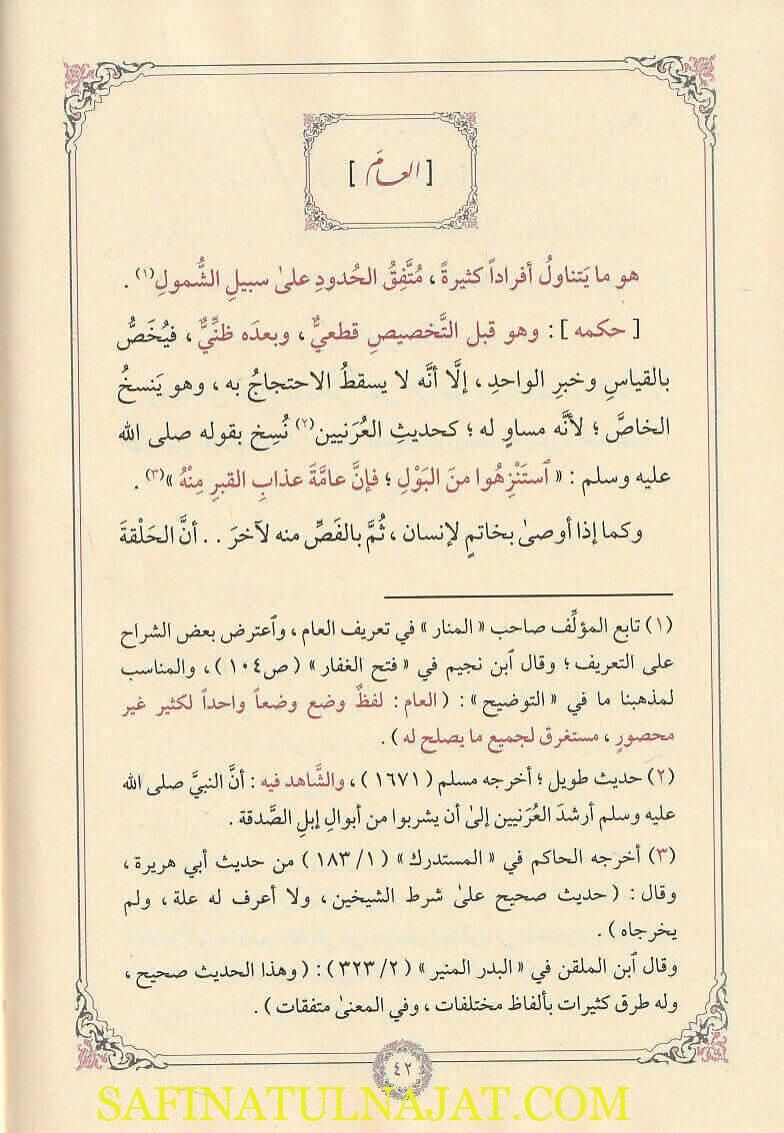 [ العامّ ]
هو ما يَتناولُ أفراداً كثيرةً ، مُتَّفِقُ الحُدودِ علىٰ سبيلِ الشُّمولِ(١) .
[ حكمه ] : وهو قبل التَّخصيصِ قطعيٌّ ، وبعدَه ظنِّيٌّ ، فيُخَصُّ
بالقياسِ وخبرِ الواحدِ ، إلَّا أنَّه لا يسقطُ الاحتجاجُ به ، وهو يَنسخُ
الخاصَّ ؛ لأنَّه مساوٍ له ؛ كحديثِ العُرَنيين(٢) نُسِخ بقوله صلى الله
عليه وسلم : « ٱستَنْزِهُوا منَ البَوْلِ ؛ فإنَّ عامَّةَ عذابِ القبرِ مِنْهُ »(٣) .
وكما إذا أوصىٰ بخاتمٍ لإنسان ، ثُمَّ بالفَصِّ منه لآخرَ . . أنَّ الحَلْقةَ
(١) تابع المؤلِّف صاحب « المنار » في تعريف العام ، وٱعترض بعض الشراح
على التعريف ؛ وقال ٱبن نجيم في « فتح الغفار » ( ص١٠٤ ) ، والمناسب
لمذهبنا ما في « التوضيح » : ( العام : لفظٌ وضع وضعاً واحداً لكثير غير
محصورٍ ، مستغرق لجميع ما يصلح له ) .
(٢) حديث طويل ؛ أخرجه مسلم ( ١٦٧١ ) ، والشَّاهد فيه : أنَّ النبيَّ صلى الله
عليه وسلم أرشدَ العُرَنيين إلىٰ أن يشربوا من أبوالِ إبلِ الصَّدقة .
(٣) أخرجه الحاكم في « المستدرك » ( ١/ ١٨٣ ) من حديث أبي هريرة ،
وقال : ( حديث صحيح علىٰ شرط الشيخين ، ولا أعرف له علة ، ولم
يخرجاه ) .
وقال ٱبن الملقن في « البدر المنير » ( ٢/ ٣٢٣ ) : ( وهذا الحديث صحيح ،
وله طرق كثيرات بألفاظ مختلفات ، وفي المعنىٰ متفقات ) .
٤٢
SAFINATULNAJAT.COM